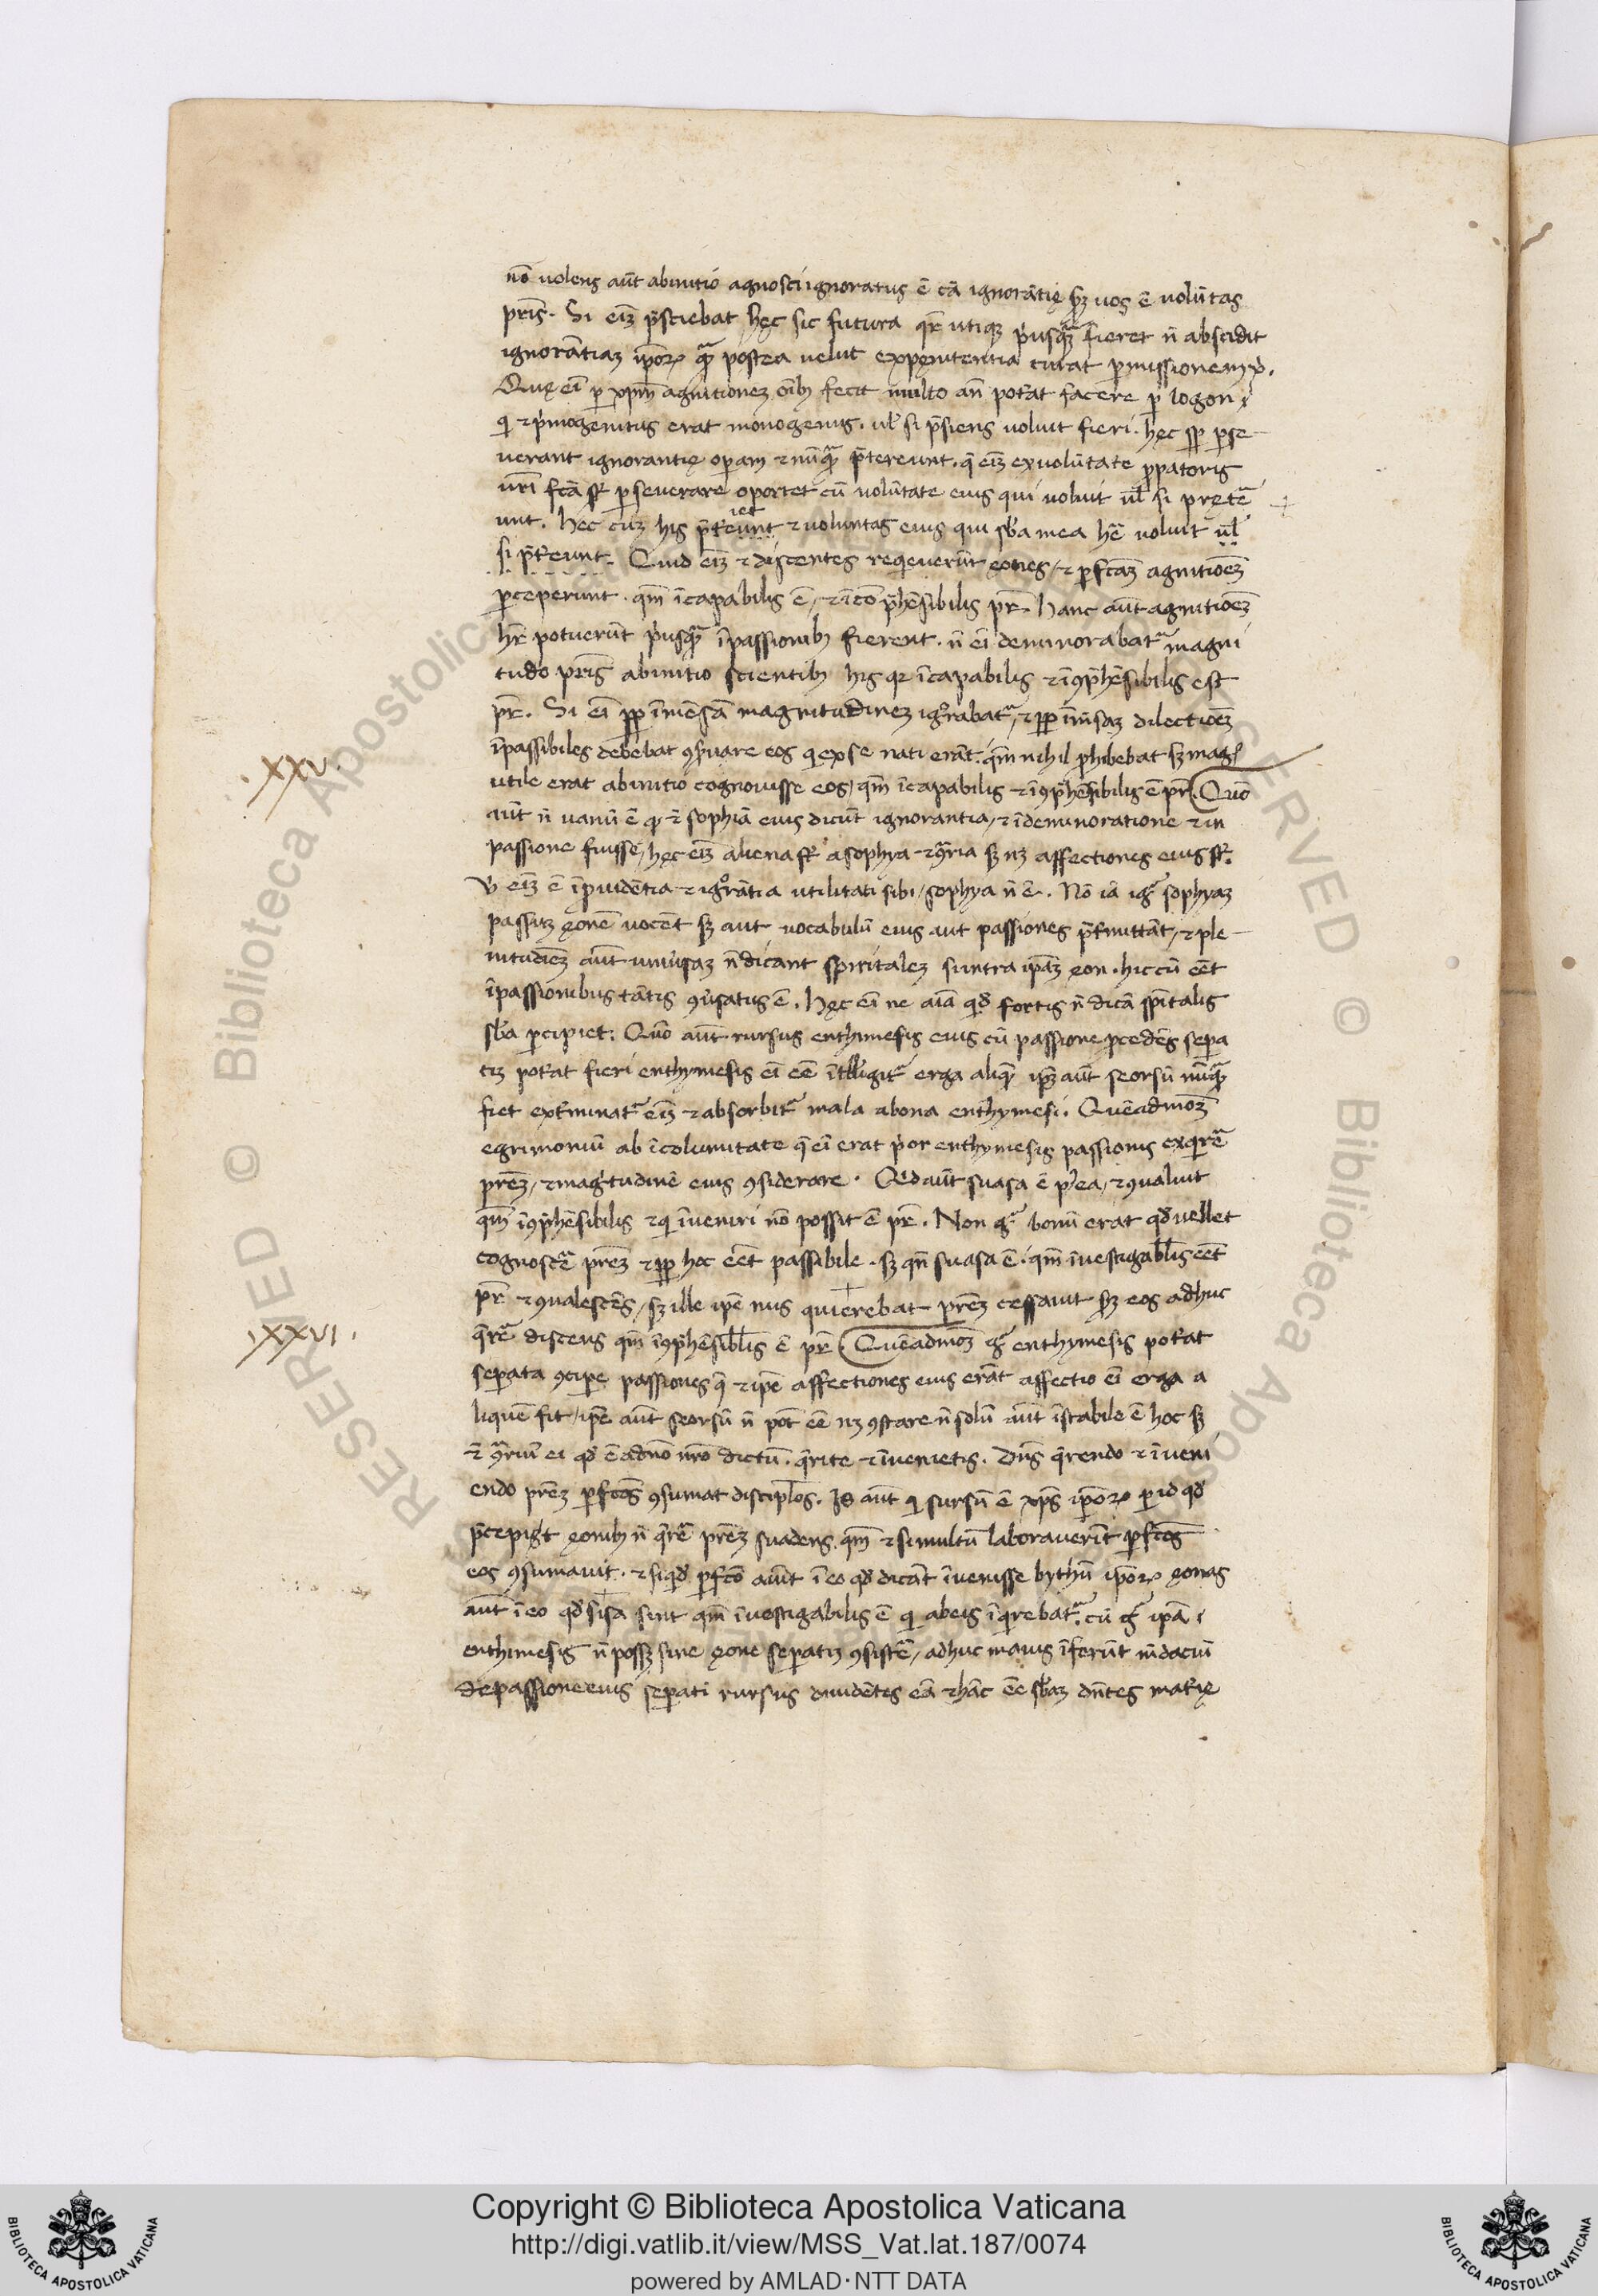 nō uolens aūt abinitio agnosci ignoratus ē cā ignorātię sꝫ uos ē volūtas
pr̄is. Si eīꝫ p̄sciebat hęc sic futura qr̄ utiqꝫ pͥusqᷓꝫ fieret n̄ abscidit
ignorātiaꝫ ip̄oꝝ qᷓ postea uelut expęnitentia curat
Quę eī p̱ xp̄m agnitionez oīb; fecit multo an̄ potat facere p̱ logon
q̇ ⁊ pͥmogenitus erat monogenus. ul̄ si p̄siens uoluit fieri. hęc sp̱ p̱se-
uerant ignorantię op̱am ⁊ nūqᷓ p̄tereunt. q̄ eīꝫ exuolūtate ꝓpatoris
ur̄i fcā sr̄ p̱seuerare oportet cū uolūtate eius qui uoluit ul̄ si pręt̄e
unt. hęc cuꝫ his p̄t̄eunt ⁊ uoluntas eius qui sb̄a mea hr̄e uoluit ul̄
iet
si p̄t̄eunt. Quid eīꝫ ⁊ discentes reqͥeuerūt ęones, ⁊ p̱fcāꝫ agnitiōeꝫ
p̱ceperunt. qm̄ īcapabilis ē, ⁊ īco p̄hēsibilis pr̄. hanc aūt agnitiōeꝫ
hr̄e potuerūt pͥusqᷓ īpassionib; fierent. n̄ eī deminorabatᷓ magni
tudo pr̄is abinitio scientib; his qꝛ īcapabilis ⁊ īꝯp̄hēsibilis est
pr̄. Si eī ꝓp̱ īmēsā magnitudineꝫ igͦrabatᷓ, ⁊ ꝓp̱ īm̄saꝫ dilectiōeꝫ
īpassibiles debebat ꝯẜuare eos q̇ exse nati erāt. qm̄ nihil ꝓhibebat sꝫ magͥ
utile erat abinitio cognouisse eos, qm̄ īcapabilis ⁊ īꝯp̄hēsibilis ē pr̄. Quō
.XXV.
aūt n̄ uanū ē ꝙ ⁊ sophiā eius dicūt ignorantia, ⁊ īdeminoratione ⁊ in
passione fuisse, hęc eīꝫ aliena sr̄ asophya ⁊ ꝯᷓria sꝫ nꝫ affectiones eius sr̄.
Vͥ eīꝫ ē īprouidētia ⁊ igͦrātia utilitati sibi, sophya n̄ ē. Nō iā igᷓ sophyaꝫ
passuꝫ ęonē uocēt sꝫ aut uocabulū eius aut passiones p̄t̄mittāt, ⁊ ple-
nitudieꝫ aūt uniūsaꝫ n̄ dicant spiritaleꝫ suntra ip̄aꝫ ęon. hic cū eēt
īpassionibus tātis ꝯūsatus ē. hęc eī ne aīa qͥd fortis n̄ dicā spītalis
sb̄a p̱cipiet. Quō aūt rursus enthimesis eius cū passione p̱cedēs sepa
tiꝫ potat fieri enthymesis eī eē ītll̄igitᷓ erga aliqͥ ip̄ꝫ aūt seorsū nūqᷓ
fiet ext̄minatᷓ eīꝫ ⁊ absorbitᷓ mala abona enthymesi. Quēadmoꝫ
egrimoniū ab īcolumitate q̄ eī erat pͥor enthymesis passionis exqͥrēᷓ
pr̄eꝫ, ⁊ magͥtudinē eius ꝯsiderare. Qd aūt suasa ē p᷒ea, ⁊ ꝯualuit
qm̄ īꝯp̄hēsibilis ⁊ q̇ īueniri nō possit ē pr̄. Non gᷓ bonū erat qđ uellet
cognoscēᷓ pr̄eꝫ ⁊ ꝓp̱ hoc eēt passibile. sꝫ qn̄ suasa ē. qm̄ īuestigabl̄is eēt
pr̄ ⁊ ꝯualescēs, sꝫ ille ip̄e nus quierebat pr̄eꝫ cessauit sꝫ eos adhuc
q̄rēᷓ discens qm̄ īꝯp̄hēsibl̄is ē pr̄. Quēadmoꝫ gᷓ enthymesis potat
.XXVI.
sep̱ata ꝯcip̱e passiones q̄ ⁊ ip̄e affectiones eius erāt affectio eī erga a
liquē fit, ip̄e aūt seorsū n̄ pōt eē nꝫ ꝯstare n̄ solū aūt īstabile ē hoc sꝫ
⁊ ꝯᷓriū ei qđ ē adn̄o nr̄o dictū. q̄rite ⁊ īuenietis. Dn̄s q̄rendo ⁊ īueni
endo pr̄eꝫ p̱fcōs ꝯsumat discipl̄os. Is aūt q̇ sursū ē xp̄s ip̄oꝝ p̱ id qđ
p̄cepit ęonib; n̄ q̄rēᷓ pr̄eꝫ suadens qm̄ ⁊ si multū laborauerīt p̱fcōs
eos ꝯsumauit. ⁊ siqͥđ p̱fcō aiūt ī eo qđ dicāt īuenisse bythū ip̄oꝝ ęonas
aūt ī eo qđ sisa sint qm̄ īuestigabilis ē q̇ abeis īqͥrebatᷓ. cū gᷓ ip̄a
enthimesis n̄ possꝫ sine ęone sep̱atiꝫ ꝯsistēᷓ, adhuc maius īferūt m̄daciū
depassione eius sep̱ati rursus diuidētes eā ⁊ hāc eē sb̄aꝫ dn̄tes mat̄ię
Copyright © Biblioteca Apostolica Vaticana
http://digi.vatlib.it/view/MSS_Vat.lat.187/0074
powered by AMLAD·NTT DATA
BIBLIOTECA APOSTOLICA VATICANA
BIBLIOTECA APOSTOLICA VATICANA
RESERVED © Biblioteca Apostolica
RESERVED © Biblioteca Apostolica